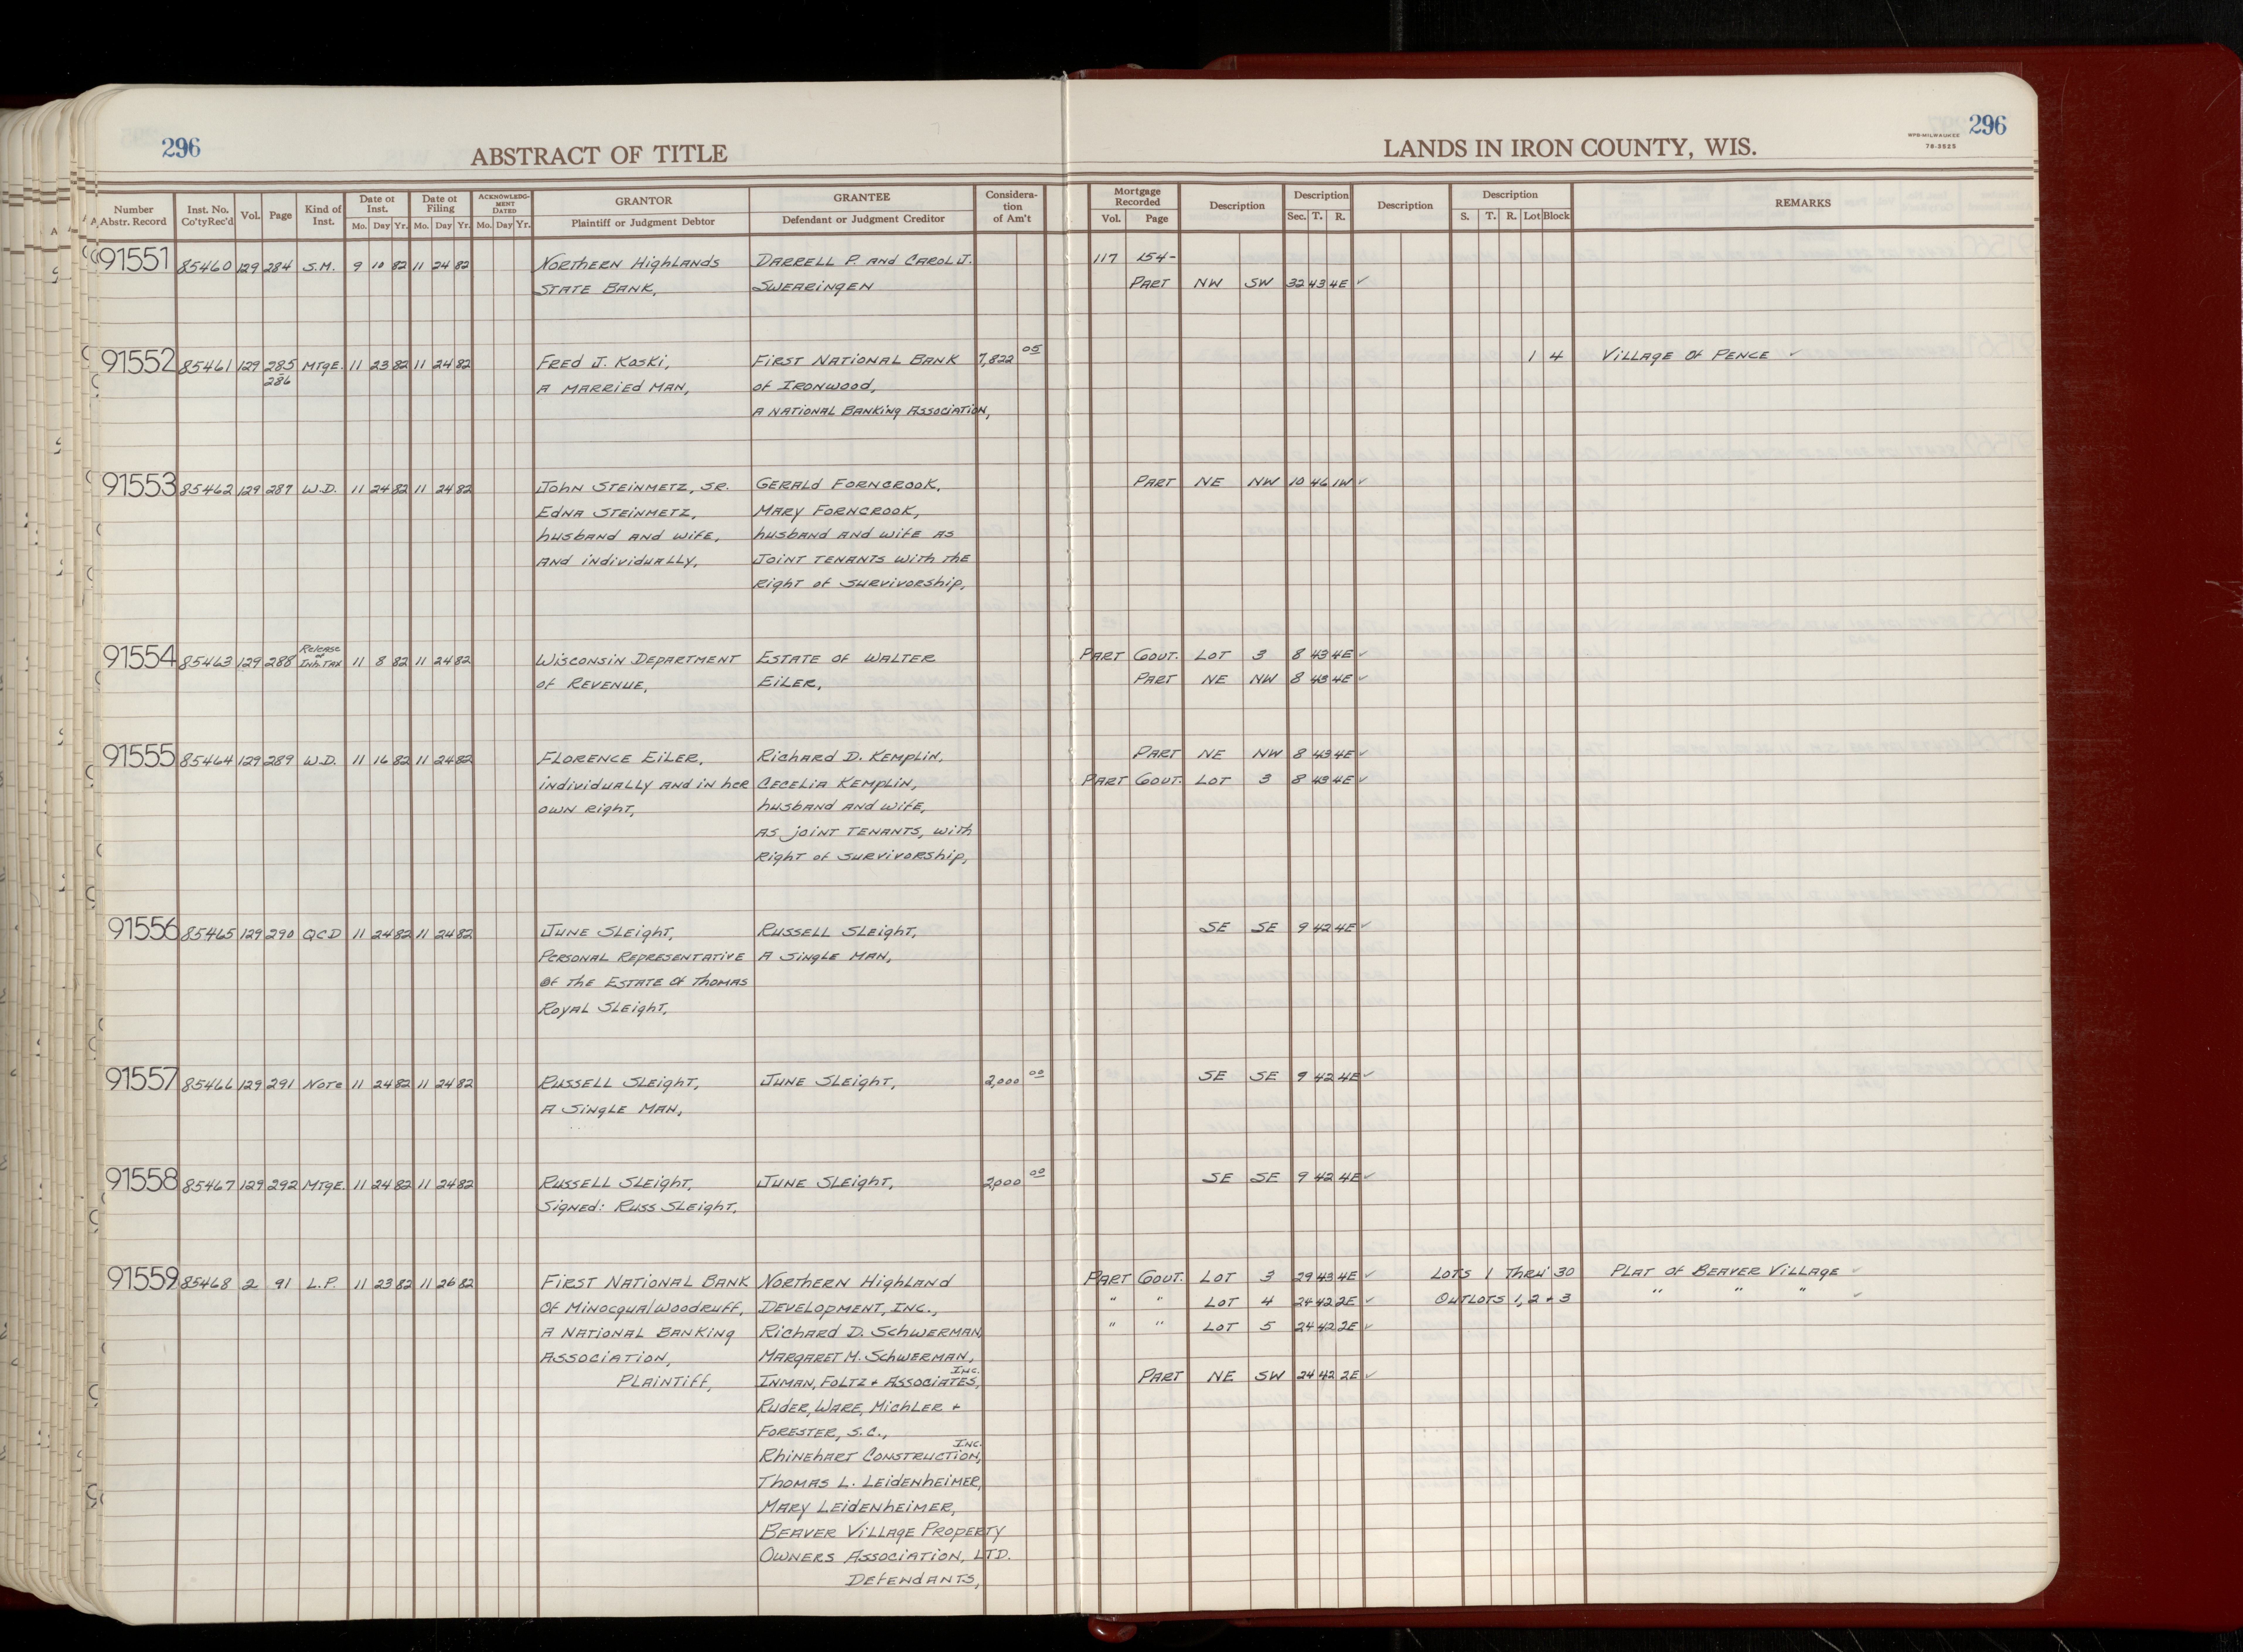 296
ABSTRACT OF TITLE
LANDS IN IRON COUNTY, WIS.
WPB-MILWAUKEE
78-3525
296
Number Abstr. Record | Inst. No. Co'ty Rec'd | Vol. | Page | Kind of Inst. | Date of Inst. Mo. Day Yr. | Date of Filing Mo. Day Yr. | ACKNOWLEDGMENT DATED Mo. Day Yr. | GRANTOR Plaintiff or Judgment Debtor | GRANTEE Defendant or Judgment Creditor | Consideration of Am't | Mortgage Recorded Vol. Page | Description | Description Sec. T. R. | Description | Description S. T. R. Lot Block | REMARKS
91551 85460 129 284 S.M. 9 10 82 11 24 82 Northern Highlands Darrell P. and Carol J. 117 154-
State Bank, Swearingen Part NW SW 32 43 4E ✓
91552 85461 129 285 Mtge. 11 23 82 11 24 82 Fred J. Koski, First National Bank 7,822 05 1 4 Village of Pence ✓
286 a married man, of Ironwood,
a National Banking Association,
91553 85462 129 287 W.D. 11 24 82 11 24 82 John Steinmetz, Sr. Gerald Forncrook, Part NE NW 10 46 1W ✓
Edna Steinmetz, Mary Forncrook,
husband and wife, husband and wife as
and individually, joint tenants with the
right of survivorship,
91554 85463 129 288 Release of Inh. Tax 11 8 82 11 24 82 Wisconsin Department Estate of Walter Part Govt. Lot 3 8 43 4E ✓
of Revenue, Eiler, Part NE NW 8 43 4E ✓
91555 85464 129 289 W.D. 11 16 82 11 24 82 Florence Eiler, Richard D. Kemplin, Part NE NW 8 43 4E ✓
individually and in her Cecelia Kemplin, Part Govt. Lot 3 8 43 4E ✓
own right, husband and wife,
as joint tenants, with
right of survivorship,
91556 85465 129 290 QCD 11 24 82 11 24 82 June Sleight, Russell Sleight, SE SE 9 42 4E ✓
Personal Representative a single man,
of the Estate of Thomas
Royal Sleight,
91557 85466 129 291 Note 11 24 82 11 24 82 Russell Sleight, June Sleight, 2,000 00 SE SE 9 42 4E ✓
a single man,
91558 85467 129 292 Mtge. 11 24 82 11 24 82 Russell Sleight, June Sleight, 2,000 00 SE SE 9 42 4E ✓
Signed: Russ Sleight,
91559 85468 2 91 L.P. 11 23 82 11 26 82 First National Bank Northern Highland Part Govt. Lot 3 29 43 4E ✓ Lots 1 thru 30 Plat of Beaver Village ✓
of Minocqua/Woodruff, Development, Inc., " " Lot 4 24 42 2E ✓ Outlots 1, 2 + 3 " " " ✓
a National Banking Richard D. Schwerman, " " Lot 5 24 42 2E ✓
Association, Margaret M. Schwerman,
Plaintiff, Inman, Foltz + Associates, Inc. Part NE SW 24 42 2E ✓
Ruder, Ware, Michler +
Forester, S.C.,
Rhinehart Construction, Inc.
Thomas L. Leidenheimer,
Mary Leidenheimer,
Beaver Village Property
Owners Association, Ltd.
Defendants,